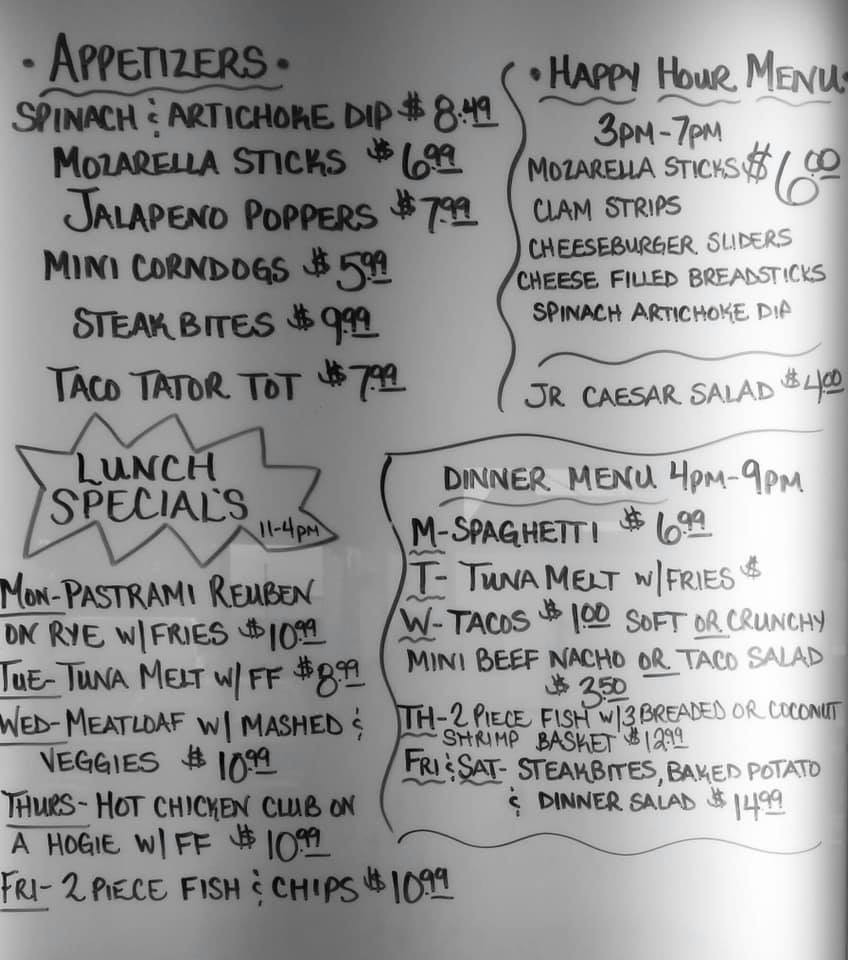 • APPETIZERS •
SPINACH & ARTICHOKE DIP $8.49
MOZARELLA STICKS $6.99
JALAPENO POPPERS $7.99
MINI CORNDOGS $5.99
STEAK BITES $9.99
TACO TATOR TOT $7.99
• HAPPY HOUR MENU •
3PM-7PM
MOZARELLA STICKS $6.00
CLAM STRIPS
CHEESEBURGER SLIDERS
CHEESE FILLED BREADSTICKS
SPINACH ARTICHOKE DIP
JR CAESAR SALAD $4.00
LUNCH
SPECIAL'S
11-4PM
MON-PASTRAMI REUBEN
ON RYE W/FRIES $10.99
TUE-TUNA MELT W/FF $8.99
WED-MEATLOAF W/MASHED &
VEGGIES $10.99
THURS-HOT CHICKEN CLUB ON
A HOGIE W/FF $10.99
FRI-2 PIECE FISH & CHIPS $10.99
DINNER MENU 4PM-9PM
M-SPAGHETTI $6.99
T-TUNA MELT W/FRIES $
W-TACOS $1.00 SOFT OR CRUNCHY
MINI BEEF NACHO OR TACO SALAD
$3.50
TH-2 PIECE FISH W/3 BREADED OR COCONUT
SHRIMP BASKET $12.99
FRI & SAT-STEAKBITES, BAKED POTATO
& DINNER SALAD $14.99